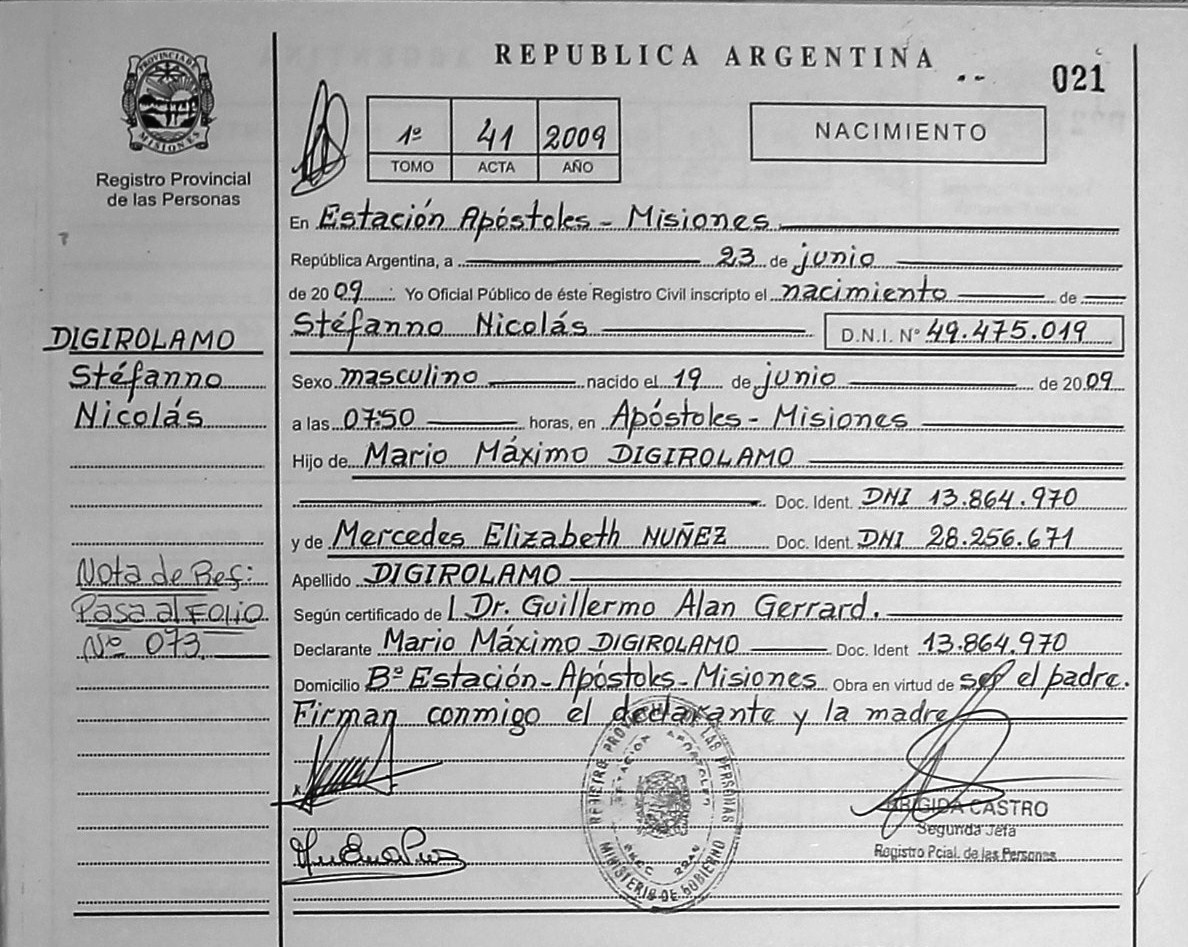 REPUBLICA ARGENTINA
021
PROVINCIA DE MISIONES
Registro Provincial
de las Personas
1º 41 2009
TOMO ACTA AÑO
NACIMIENTO
En Estación Apóstoles - Misiones
República Argentina, a 23 de junio
de 2009 Yo Oficial Público de éste Registro Civil inscripto el nacimiento de
Stéfanno Nicolás D.N.I. Nº 49.475.019
Sexo masculino nacido el 19 de junio de 2009
a las 07:50 horas, en Apóstoles - Misiones
Hijo de Mario Máximo DIGIROLAMO
Doc. Ident. DNI 13.864.970
y de Mercedes Elizabeth NUÑEZ Doc. Ident. DNI 28.256.671
Apellido DIGIROLAMO
Según certificado de Dr. Guillermo Alan Gerrard.
Declarante Mario Máximo DIGIROLAMO Doc. Ident 13.864.970
Domicilio Bº Estación - Apóstoles - Misiones Obra en virtud de ser el padre.
Firman conmigo el declarante y la madre
DIGIROLAMO
Stéfanno
Nicolás
Nota de Ref:
Pasa al FOLIO
Nº 073
REGISTRO PROVINCIAL DE LAS PERSONAS
ESTACION APOSTOLES
MINISTERIO DE GOBIERNO
BRIGIDA CASTRO
Segunda Jefa
Registro Pcial. de las Personas